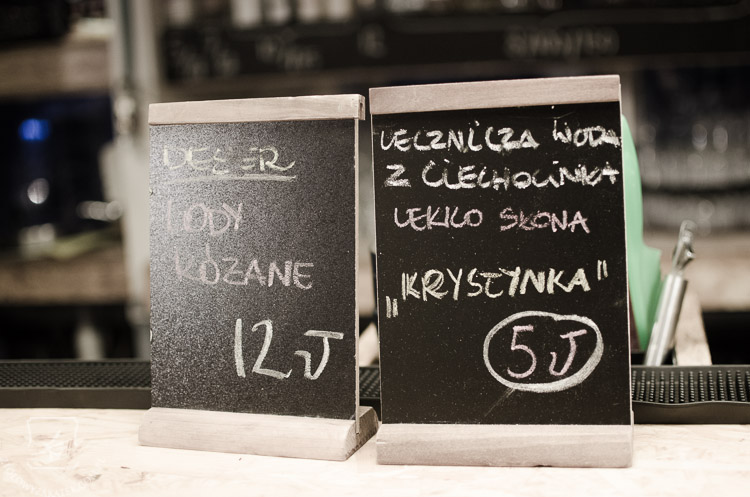 DESER
LODY
RÓŻANE
12 zł
LECZNICZA WODA
Z CIECHOCINKA
LEKKO SŁONA
„KRYSTYNKA"
5 zł